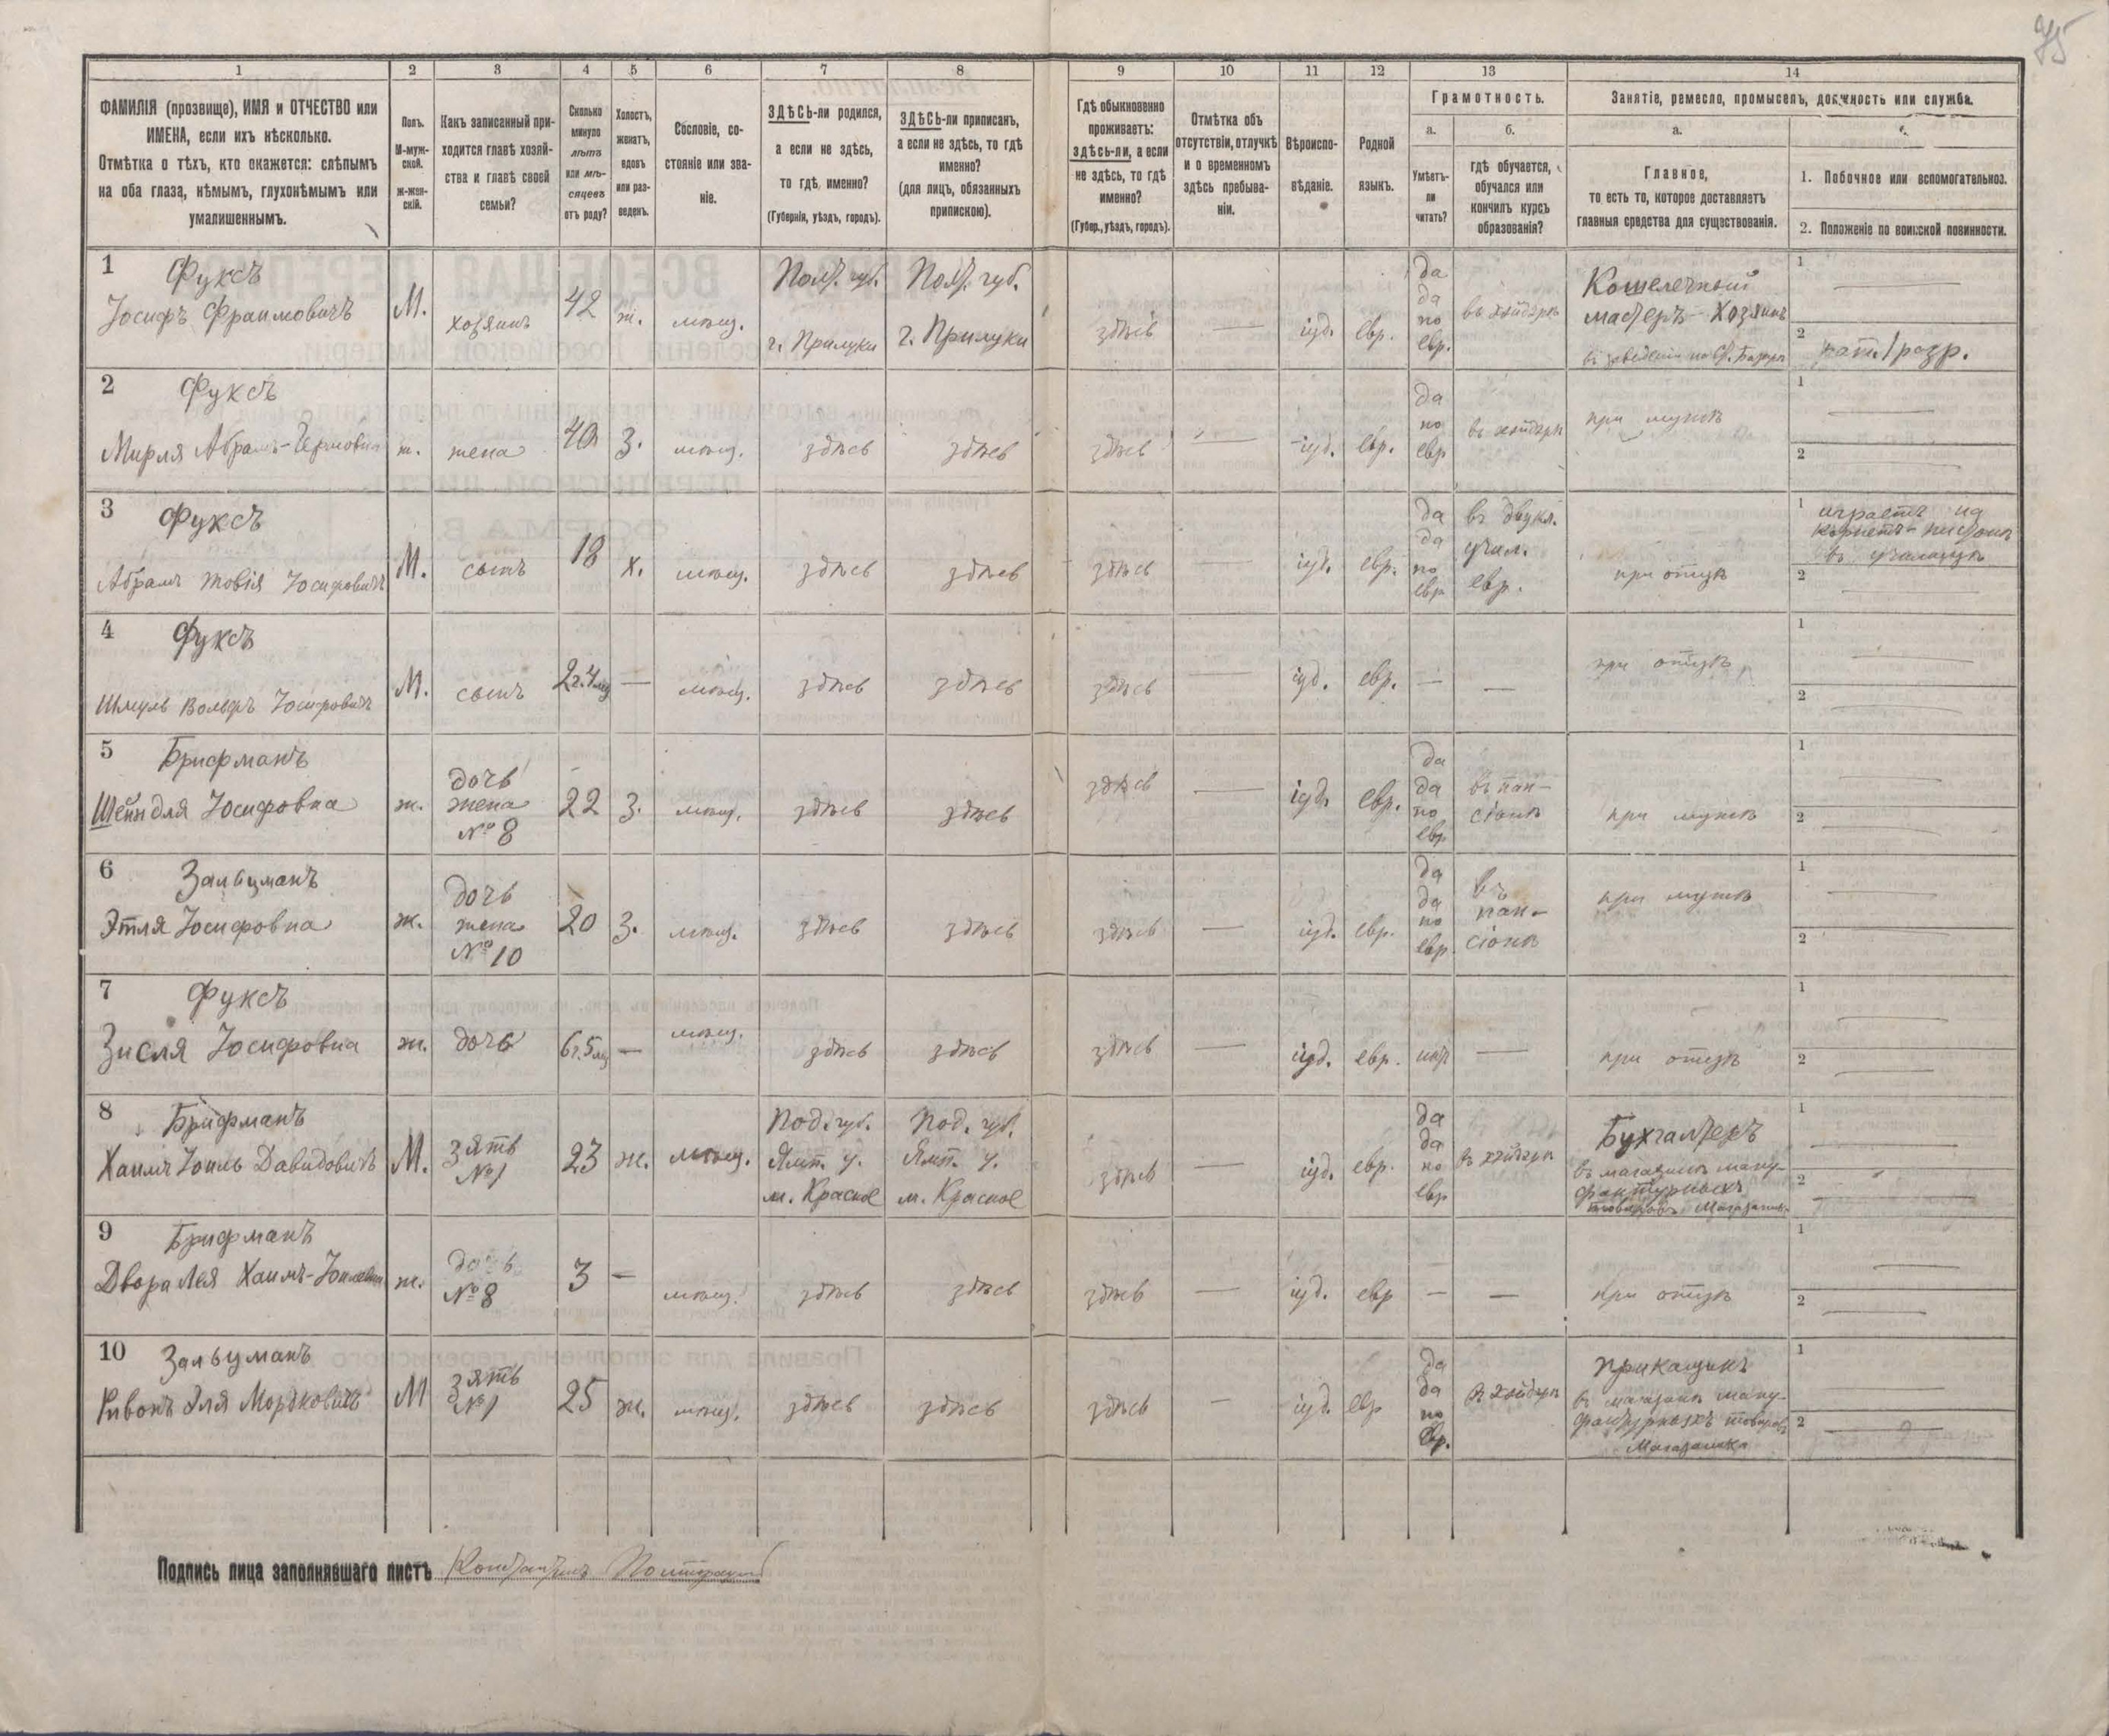 75
1 2 3 4 5 6 7 8 9 10 11 12 13 14
ФАМИЛІЯ (прозвище), ИМЯ и ОТЧЕСТВО или
ИМЕНА, если ихъ нѣсколько.
Отмѣтка о тѣхъ, кто окажется: слѣпымъ
на оба глаза, нѣмымъ, глухонѣмымъ или
умалишеннымъ.
Полъ.
М-муж-
ской.
ж-жен-
скій.
Какъ записанный при-
ходится главѣ хозяй-
ства и главѣ своей
семьи?
Сколько
минуло
лѣтъ
или мѣ-
сяцевъ
отъ роду?
Холостъ,
женатъ,
вдовъ
или раз-
веденъ.
Сословіе, со-
стояніе или зва-
ніе.
ЗДѢСЬ-ли родился,
а если не здѣсь,
то гдѣ, именно?
(Губернія, уѣздъ, городъ).
ЗДѢСЬ-ли приписанъ,
а если не здѣсь, то гдѣ
именно?
(для лицъ, обязанныхъ
припискою).
Гдѣ обыкновенно
проживаетъ:
здѣсь-ли, а если
не здѣсь, то гдѣ
именно?
(Губер., уѣздъ, городъ).
Отмѣтка объ
отсутствіи, отлучкѣ
и о временномъ
здѣсь пребыва-
ніи.
Вѣроиспо-
вѣданіе.
Родной
языкъ.
Грамотность.
а.
Умѣетъ-
ли
читать?
б.
гдѣ обучается,
обучался или
кончилъ курсъ
образованія?
Занятіе, ремесло, промыселъ, должность или служба.
а.
Главное,
то есть то, которое доставляетъ
главныя средства для существованія.
1. Побочное или вспомогательное.
2. Положеніе по воинской повинности.
1 Фуксъ
Іосифъ Фраимовичъ
М.
хозяинъ
42
ж.
мѣщ.
Полт. губ.
г. Прилуки
Полт. губ.
г. Прилуки
здѣсь
—
іуд.
евр.
да
да
по
евр.
въ хейдерѣ
Кошелечный
мастеръ - Хозяинъ
1 —
2 рат. 1 разр.
2 Фуксъ
Мирля
ж.
жена
40
З.
мѣщ.
здѣсь
здѣсь
здѣсь
—
іуд.
евр.
да
по
евр
въ хейдерѣ
при мужѣ
1 —
2 —
3 Фуксъ
Абрамъ Товія Іосифовичъ
М.
сынъ
18
х.
мѣщ.
здѣсь
здѣсь
здѣсь
—
іуд.
евр.
да
да
по
евр
въ двукл.
учил.
евр.
при отцѣ
1 играетъ на
корнетъ-пистонѣ
въ училищѣ
2 —
4 Фуксъ
Шмуль Вольфъ Іосифовичъ
М.
сынъ
2г. 4 мѣ
—
мѣщ.
здѣсь
здѣсь
здѣсь
—
іуд.
евр.
—
—
при отцѣ
1 —
2 —
5 Брифманъ
Шейндля Іосифовна
ж.
дочь
жена
№ 8
22
З.
мѣщ.
здѣсь
здѣсь
здѣсь
—
іуд.
евр.
да
да
по
евр
въ пан-
сіонѣ
при мужѣ
1 —
2 —
6 Зальцманъ
Этля Іосифовна
ж.
дочь
жена
№ 10
20
З.
мѣщ.
здѣсь
здѣсь
здѣсь
—
іуд.
евр.
да
да
по
евр
въ
пан-
сіонѣ
при мужѣ
1 —
2 —
7 Фуксъ
Зисля Іосифовна
ж.
дочь
6г. 5 мѣ
—
мѣщ.
здѣсь
здѣсь
здѣсь
—
іуд.
евр.
нѣт
—
при отцѣ
1 —
2 —
8 Брифманъ
Хаимъ Іоиль Давидовичъ
М.
зять
№ 1
23
ж.
мѣщ.
Под. губ.
Ямп. у.
м. Красное
Под. губ.
Ямп. у.
м. Красное
здѣсь
—
іуд.
евр.
да
да
по
евр
въ хейдерѣ
Бухгалтеръ
въ магазинѣ ману-
фактурныхъ
товаровъ
1 —
2 —
9 Брифманъ
Двора Лея Хаимъ-Іоилевна
ж.
дочь
№ 8
3
—
мѣщ.
здѣсь
здѣсь
здѣсь
—
іуд.
евр
—
—
при отцѣ
1 —
2 —
10 Зальцманъ
М
зять
№ 1
25
ж.
мѣщ.
здѣсь
здѣсь
здѣсь
—
іуд.
евр
да
да
по
евр.
въ хейдерѣ
Прикащикъ
въ магазинѣ ману-
фактурныхъ товаровъ
1 —
2 —
Подпись лица заполнявшаго листъ